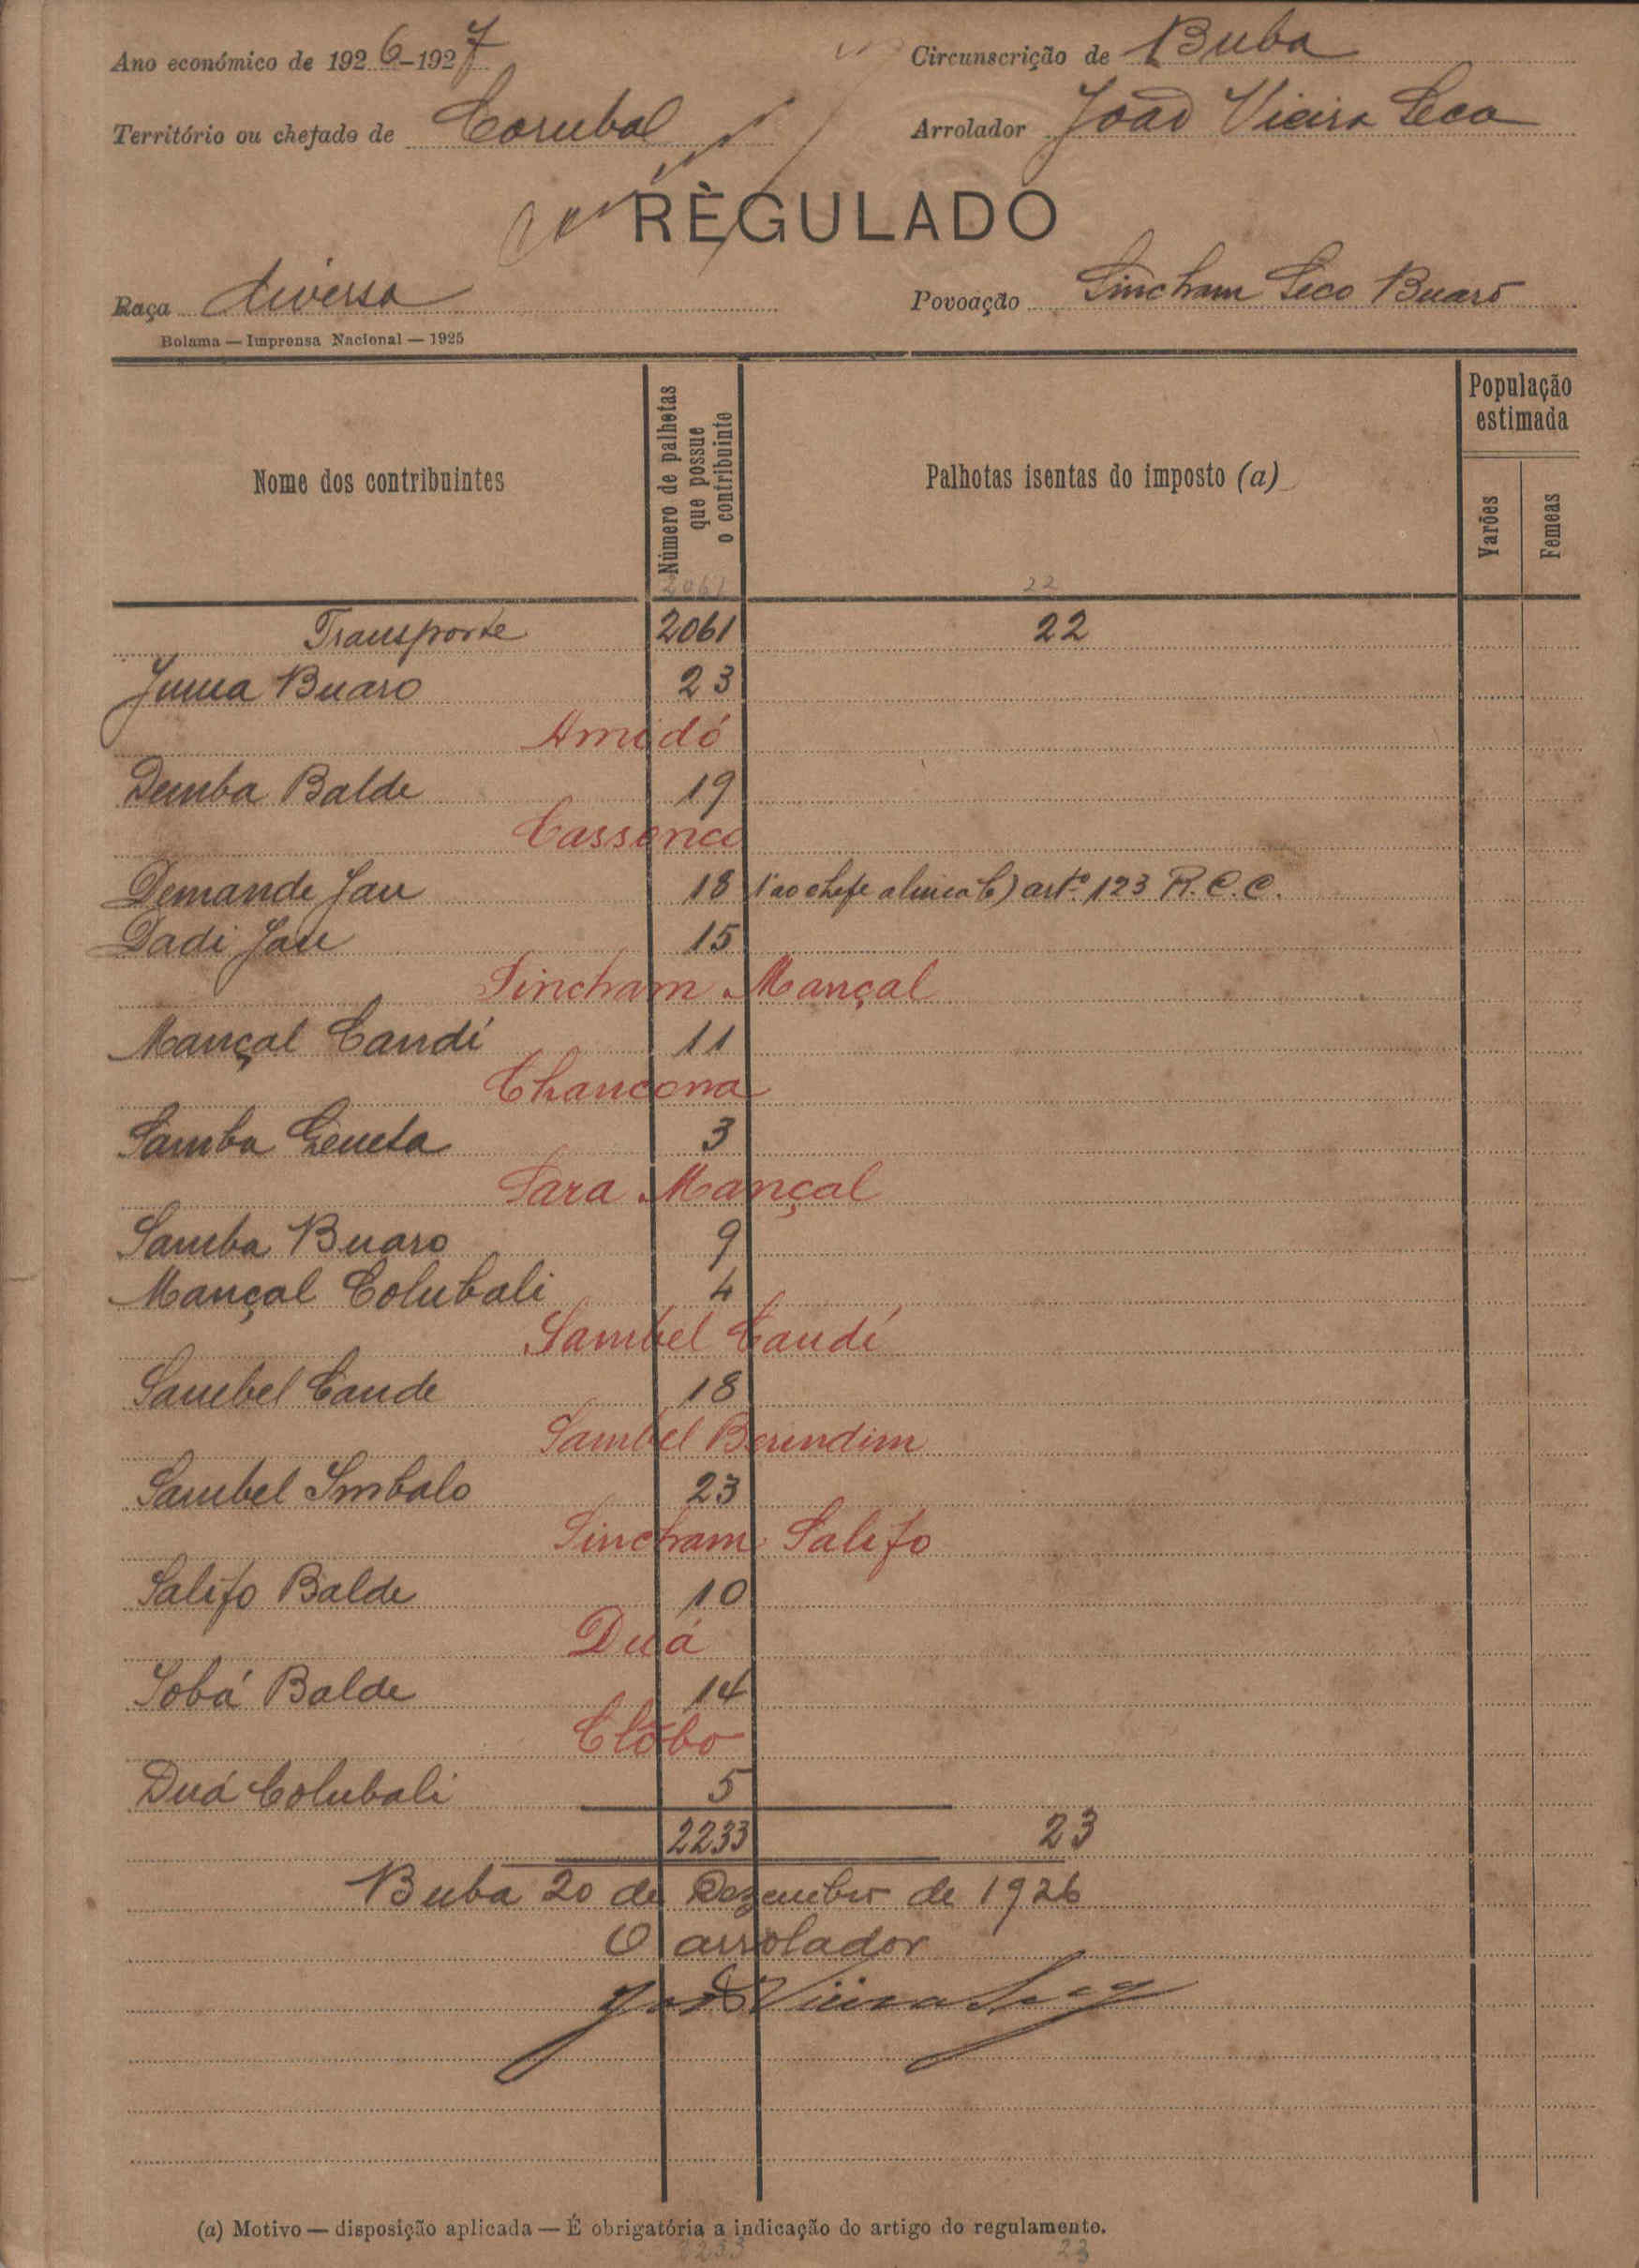 Ano económico de 1926-1927
Circunscrição de Buba
Território ou chefado de Corubal
Arrolador João Vieira Seca
RÈGULADO
Raça diversa
Povoação Sincham Seco Buaro
Bolama — Imprensa Nacional — 1925
Nome dos contribuintes
Número de palhetas que possue o contribuinte
Palhotas isentas do imposto (a)
População estimada
Varões
Femeas
2061 22
Transporte 2061 22
Juma Buaro 23
Amidó
Demba Balde 19
Cassenca
Demande Jau 18 1 ao chefe alinea b) artº 123 R.C.C.
Dadi Jau 15
Sincham Mançal
Mançal Candí 11
Chancona
Samba Geneta 3
Sara Mançal
Samba Buaro 9
Mançal Colubali 4
Sambel Candí
Sambel Cande 18
Sambel Berindim
Sambel Embalo 23
Sincham Salifo
Salifo Balde 10
Duá
Sobá Balde 14
Clôbo
Duá Colubali 5
2233 23
Buba 20 de Dezembro de 1926
O arrolador
João Vieira Seca
(a) Motivo — disposição aplicada — É obrigatória a indicação do artigo do regulamento.
2233 23